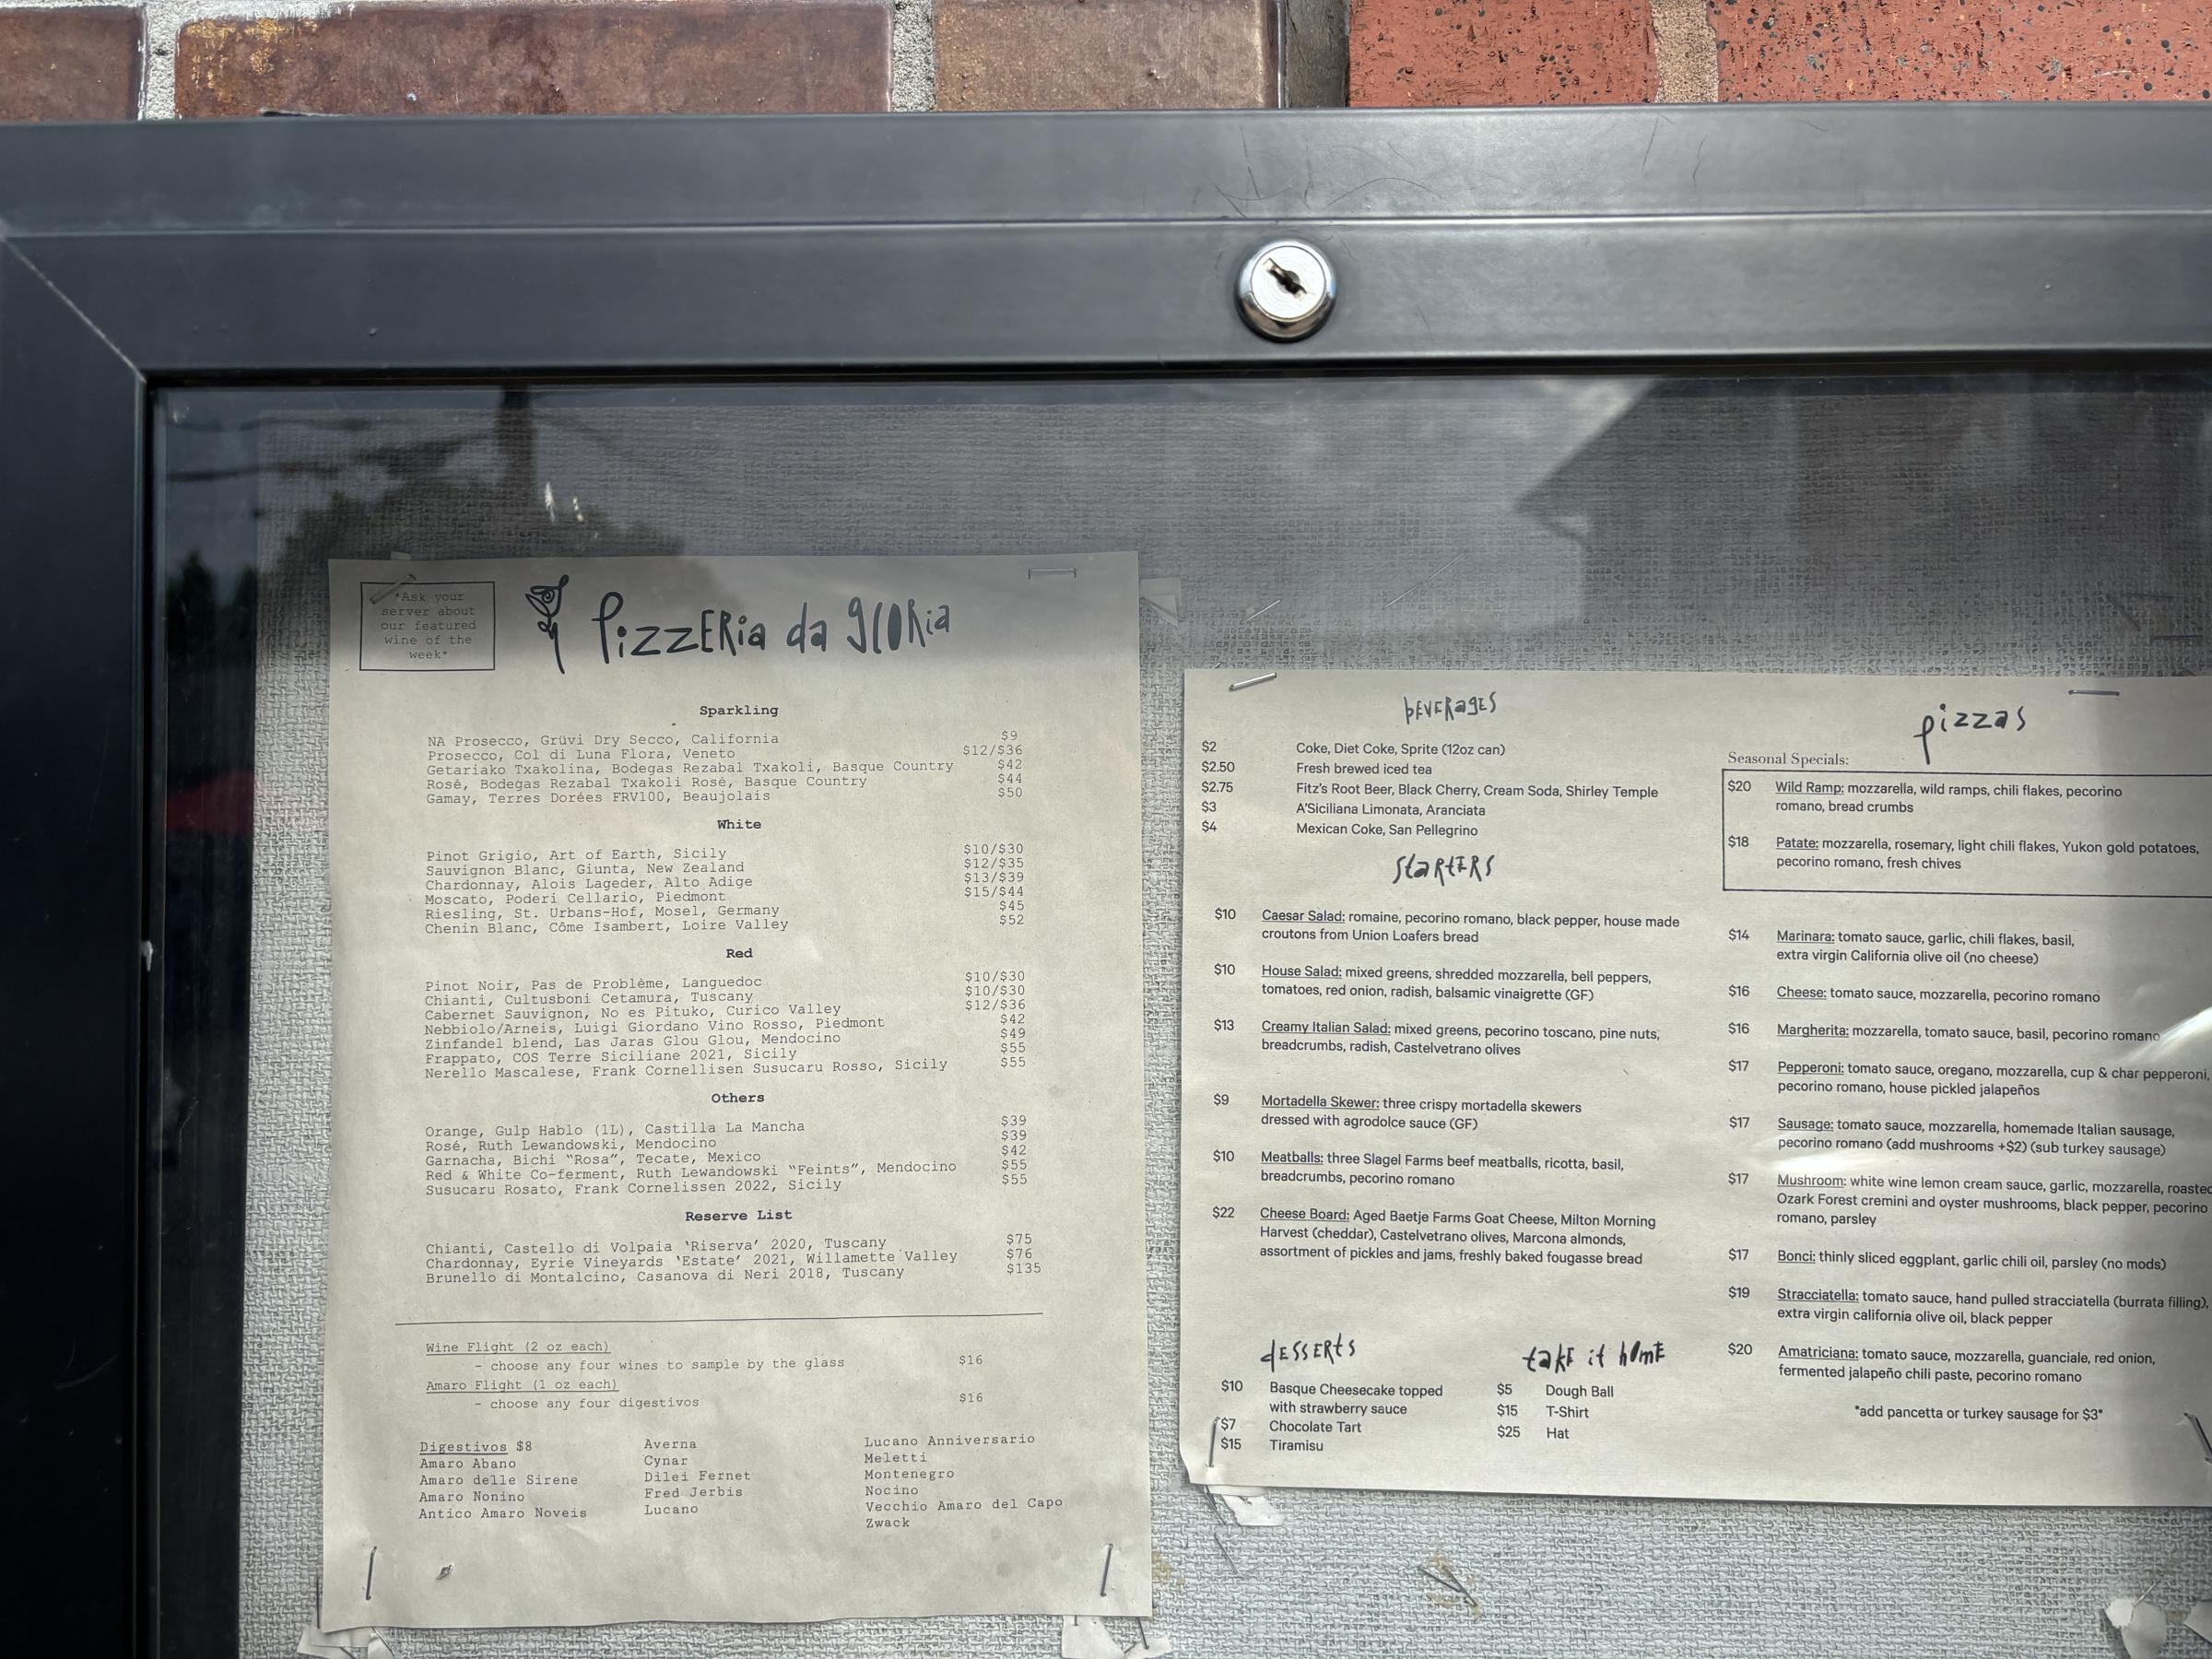 *Ask your
server about
our featured
wine of the
week*
Pizzeria da Gloria
Sparkling
NA Prosecco, Grüvi Dry Secco, California $9
Prosecco, Col di Luna Flora, Veneto $12/$36
Getariako Txakolina, Bodegas Rezabal Txakoli, Basque Country $42
Rosé, Bodegas Rezabal Txakoli Rosé, Basque Country $44
Gamay, Terres Dorées FRV100, Beaujolais $50
White
Pinot Grigio, Art of Earth, Sicily $10/$30
Sauvignon Blanc, Giunta, New Zealand $12/$35
Chardonnay, Alois Lageder, Alto Adige $13/$39
Moscato, Poderi Cellario, Piedmont $15/$44
Riesling, St. Urbans-Hof, Mosel, Germany $45
Chenin Blanc, Côme Isambert, Loire Valley $52
Red
Pinot Noir, Pas de Problème, Languedoc $10/$30
Chianti, Cultusboni Cetamura, Tuscany $10/$30
Cabernet Sauvignon, No es Pituko, Curico Valley $12/$36
Nebbiolo/Arneis, Luigi Giordano Vino Rosso, Piedmont $42
Zinfandel blend, Las Jaras Glou Glou, Mendocino $49
Frappato, COS Terre Siciliane 2021, Sicily $55
Nerello Mascalese, Frank Cornellisen Susucaru Rosso, Sicily $55
Others
Orange, Gulp Hablo (1L), Castilla La Mancha $39
Rosé, Ruth Lewandowski, Mendocino $39
Garnacha, Bichi "Rosa", Tecate, Mexico $42
Red & White Co-ferment, Ruth Lewandowski "Feints", Mendocino $55
Susucaru Rosato, Frank Cornelissen 2022, Sicily $55
Reserve List
Chianti, Castello di Volpaia 'Riserva' 2020, Tuscany $75
Chardonnay, Eyrie Vineyards 'Estate' 2021, Willamette Valley $76
Brunello di Montalcino, Casanova di Neri 2018, Tuscany $135
Wine Flight (2 oz each)
- choose any four wines to sample by the glass $16
Amaro Flight (1 oz each)
- choose any four digestivos $16
Digestivos $8
Amaro Abano
Amaro delle Sirene
Amaro Nonino
Antico Amaro Noveis
Averna
Cynar
Dilei Fernet
Fred Jerbis
Lucano
Lucano Anniversario
Meletti
Montenegro
Nocino
Vecchio Amaro del Capo
Zwack
beverages
$2 Coke, Diet Coke, Sprite (12oz can)
$2.50 Fresh brewed iced tea
$2.75 Fitz's Root Beer, Black Cherry, Cream Soda, Shirley Temple
$3 A'Siciliana Limonata, Aranciata
$4 Mexican Coke, San Pellegrino
starters
$10 Caesar Salad: romaine, pecorino romano, black pepper, house made
croutons from Union Loafers bread
$10 House Salad: mixed greens, shredded mozzarella, bell peppers,
tomatoes, red onion, radish, balsamic vinaigrette (GF)
$13 Creamy Italian Salad: mixed greens, pecorino toscano, pine nuts,
breadcrumbs, radish, Castelvetrano olives
$9 Mortadella Skewer: three crispy mortadella skewers
dressed with agrodolce sauce (GF)
$10 Meatballs: three Slagel Farms beef meatballs, ricotta, basil,
breadcrumbs, pecorino romano
$22 Cheese Board: Aged Baetje Farms Goat Cheese, Milton Morning
Harvest (cheddar), Castelvetrano olives, Marcona almonds,
assortment of pickles and jams, freshly baked fougasse bread
desserts
$10 Basque Cheesecake topped
with strawberry sauce
$7 Chocolate Tart
$15 Tiramisu
take it home
$5 Dough Ball
$15 T-Shirt
$25 Hat
pizzas
Seasonal Specials:
$20 Wild Ramp: mozzarella, wild ramps, chili flakes, pecorino
romano, bread crumbs
$18 Patate: mozzarella, rosemary, light chili flakes, Yukon gold potatoes,
pecorino romano, fresh chives
$14 Marinara: tomato sauce, garlic, chili flakes, basil,
extra virgin California olive oil (no cheese)
$16 Cheese: tomato sauce, mozzarella, pecorino romano
$16 Margherita: mozzarella, tomato sauce, basil, pecorino romano
$17 Pepperoni: tomato sauce, oregano, mozzarella, cup & char pepperoni,
pecorino romano, house pickled jalapeños
$17 Sausage: tomato sauce, mozzarella, homemade Italian sausage,
pecorino romano (add mushrooms +$2) (sub turkey sausage)
$17 Mushroom: white wine lemon cream sauce, garlic, mozzarella, roasted
Ozark Forest cremini and oyster mushrooms, black pepper, pecorino
romano, parsley
$17 Bonci: thinly sliced eggplant, garlic chili oil, parsley (no mods)
$19 Stracciatella: tomato sauce, hand pulled stracciatella (burrata filling),
extra virgin california olive oil, black pepper
$20 Amatriciana: tomato sauce, mozzarella, guanciale, red onion,
fermented jalapeño chili paste, pecorino romano
*add pancetta or turkey sausage for $3*